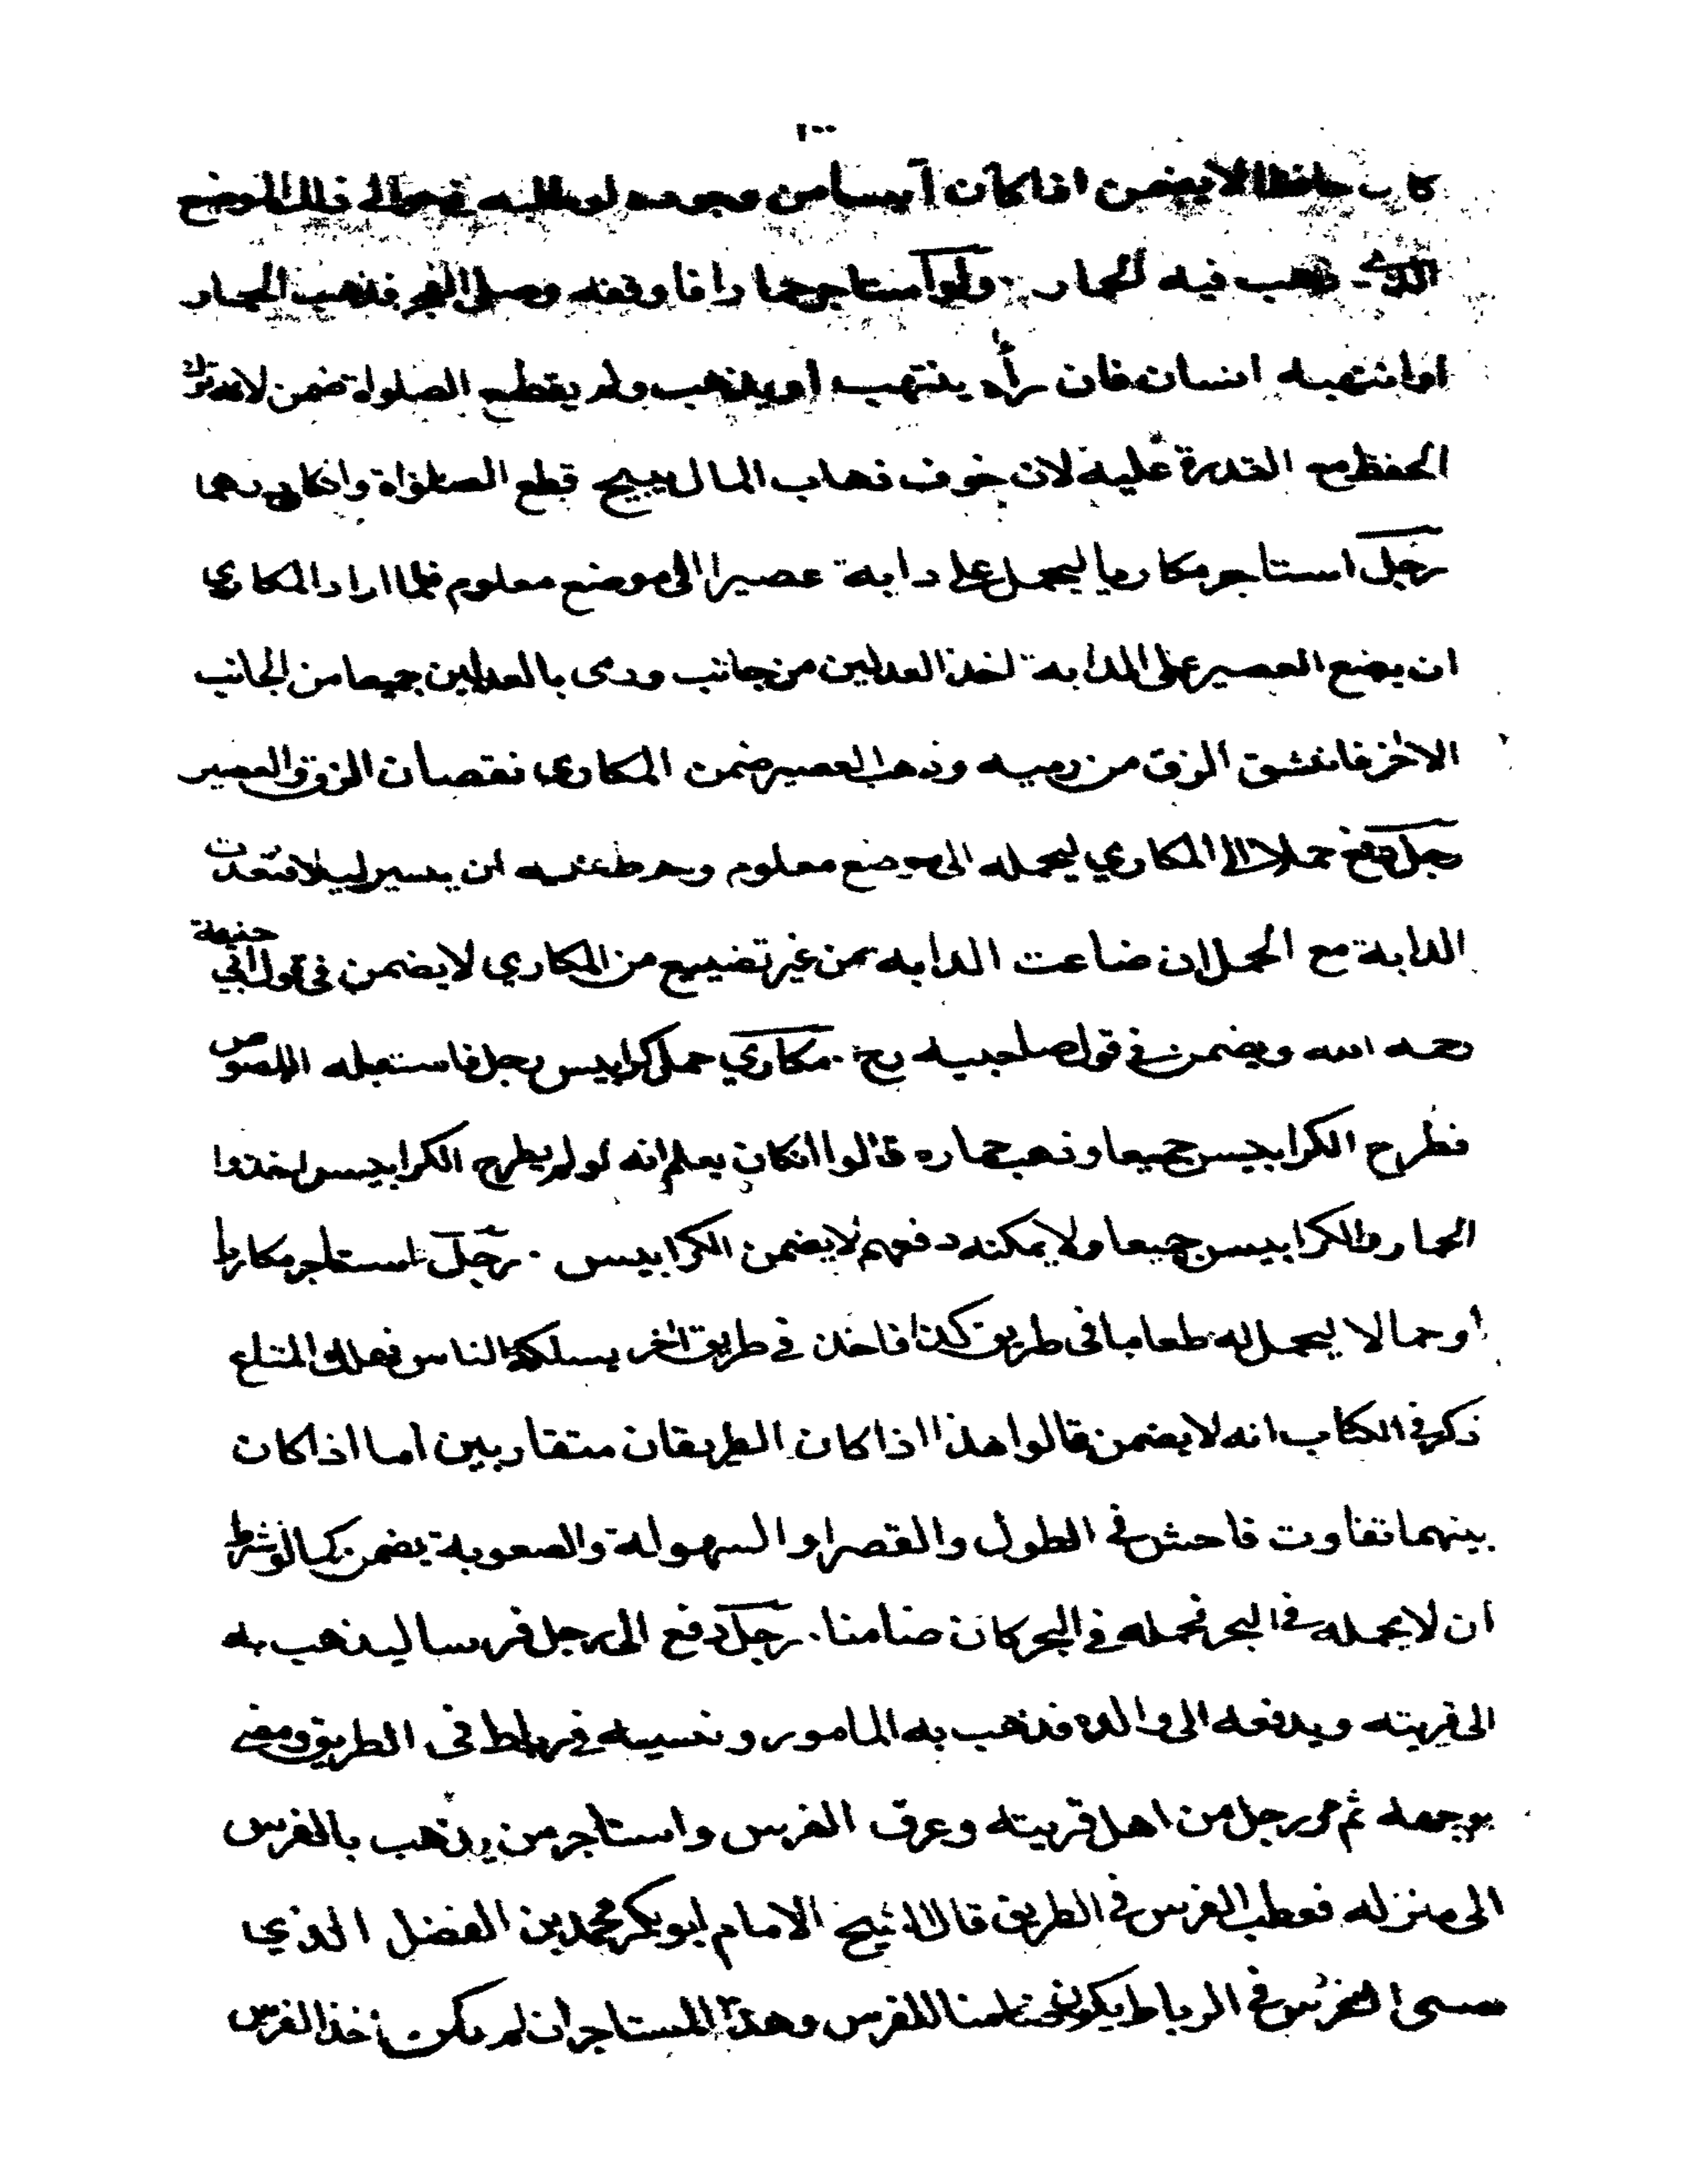 ١٠٠
كان حافظا لا يضمن اذا كان آيسا من وجوده لو طلبه في حوالى ذلك الموضع
الذي ذهب فيه الحمار ولو استاجر حمارا فاوقفه وصلى الفجر فذهب الحمار
او انتهبه انسان فان رأه ينتهب او يذهب ولم يقطع الصلواة ضمن لانه ترك
الحفظ مع القدرة عليه لان خوف ذهاب المال يبيح قطع الصلواة وانكان درهما
رجل استاجر مكاريا ليحمل على دابة عصيرا الى موضع معلوم فلما اراد المكاري
ان يضع العصير على الدابة اخذ العدلين من جانب ورمى بالعدلين جميعا من الجانب
الاخر فانشق الزق من رميه وذهب العصير ضمن المكارى نقصان الزق والعصير
رجل دفع حملا الى المكاري ليحمله الى موضع معلوم وشرط عليه ان يسير ليلا فقعدت
الدابة مع الحمل ان ضاعت الدابه من غير تضييع من المكاري لا يضمن فى قول ابي حنيفة
رحمه الله ويضمن في قول صاحبيه رح . مكاري حمل كرابيس رجل فاستقبله اللصوص
فطرح الكرابيس جميعا وذهب بحماره قالوا انكان يعلم انه لو لم يطرح الكرابيس اخذوا
الحمار والكرابيس جميعا ولا يمكنه دفعهم لا يضمن الكرابيس . رجل استاجر مكاريا
او حمالا ليحمل له طعاما فى طريق كذا فاخذ في طريق اخر يسلكه الناس فهلك المتاع
ذكر في الكتاب انه لا يضمن قالوا هذا اذا كان الطريقان متقاربين اما اذا كان
بينهما تفاوت فاحش في الطول والقصر او السهولة والصعوبة يضمن كما لو شرط
ان لا يحمله في البحر فحمله في البحر كان ضامنا . رجل دفع الى رجل فرسا ليذهب به
الى قريته ويدفعه الى والده فذهب به المامور ونسيه في رباط فى الطريق ومضى
بوجهه ثم مر رجل من اهل قريته وعرف الفرس واستاجر من يذهب بالفرس
الى منزله فعطب الفرس في الطريق قال الشيخ الامام ابو بكر محمد بن الفضل الذي
نسى الفرس في الرباط يكون ضامنا للفرس وهذا المستاجر ان لم يكن اخذ الفرس